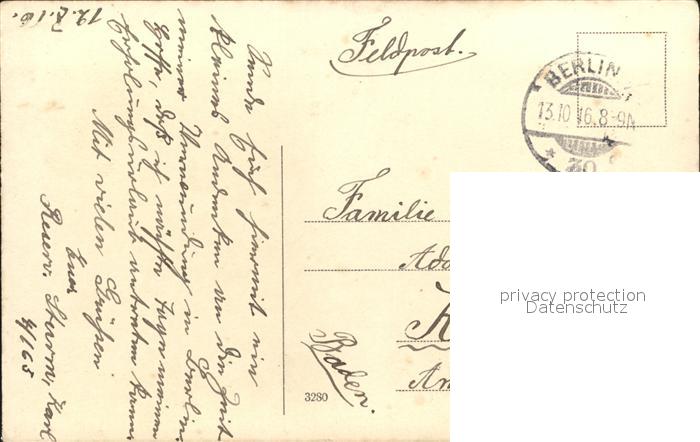 12.X.16.
Sende Euch hiermit ein
kleines Andenken von der Zeit
meiner Verwundung in Berlin.
Hoffe, daß ich nächster Tage meinen
Erholungsurlaub antreten kann.
Mit vielen Grüßen
Euer
Reserv. Sturm, Karl
Feldpost.
BERLIN
13.10 16.8-9N
30
Familie
Baden.
3280
privacy protection
Datenschutz